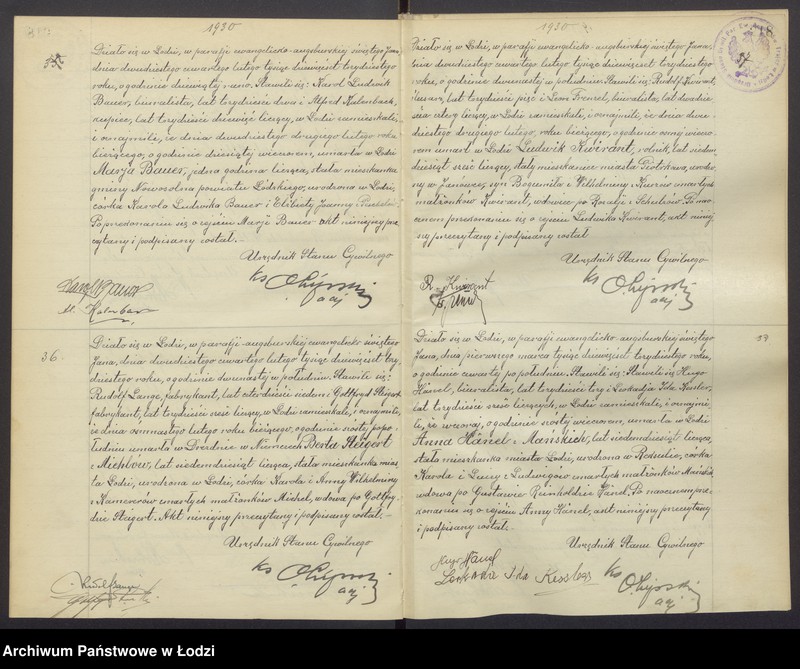 1930
Działo się w Łodzi, w parafji ewangelicko-augsburskiej świętego Jana,
dnia dwudziestego czwartego lutego tysiąc dziewięćset trzydziestego
roku, o godzinie dziewiątej rano. Stawili się: Karol Ludwik
Bauer, biuralista, lat trzydzieści dwa i Alfred
lat trzydzieści dziewięć liczący, w Łodzi zamieszkali,
i oznajmili, że dnia dwudziestego drugiego lutego roku
bieżącego, o godzinie dziesiątej wieczorem, umarła w Łodzi
Marja Bauer, jedna godzina licząca, stała mieszkanka
gminy Nowosolna powiatu Łódzkiego, urodzona w Łodzi,
córka Karola Ludwika Bauer i Elżbiety Joanny
Po przekonaniu się o zejściu Marji Bauer akt niniejszy prze
czytany i podpisany został.-
Urzędnik Stanu Cywilnego
ks
36.
Działo się w Łodzi, w parafji-augsburskiej ewangelicko świętego
Jana, dnia dwudziestego czwartego lutego tysiąc dziewięćset trzy
dziestego roku, o godzinie dwunastej w południe. Stawili się:
Rudolf Lange, fabrykant, lat czterdzieści siedem i Gottfryd Steigert
fabrykant, lat trzydzieści sześć liczący, w Łodzi zamieszkali, i oznajmili,
że dnia osiemnastego lutego roku bieżącego, o godzinie szóstej, popo
łudniu umarła w Dreźnie w Niemczech Berta Steigert
z Michlów, lat siedemdziesiąt licząca, stała mieszkanka mias
ta Łodzi, urodzona w Łodzi, córka Karola i Anny Wilhelminy
z umarłych małżonków Michel, wdowa po Gottfry
dzie Steigert. Akt niniejszy przeczytany i podpisany został.-
Urzędnik Stanu Cywilnego
ks
1930
37
Działo się w Łodzi, w parafji ewangelicko-augsburskiej świętego Jana,
dnia dwudziestego czwartego lutego tysiąc dziewięćset trzydziestego
roku, o godzinie dwunastej w południe. Stawili się: Rudolf Kwirant,
lat trzydzieści pięć i Leon Frenzel, biuralista, lat dwadzie
ścia cztery liczący, w Łodzi zamieszkali, i oznajmili, że dnia dwu-
dziestego drugiego lutego, roku bieżącego, o godzinie ósmej wieczo
rem umarł w Łodzi Ludwik Kwirant, rolnik, lat siedem
dziesiąt sześć liczący, stały mieszkaniec miasta Piotrkowa, urodzo
ny w Janowce, syn Bogumiła i Wilhelminy z umarłych
małżonków Kwirant, wdowiec po Rozalji z Schulców. Po nao-
cznem przekonaniu się o zejściu Ludwika Kwirant, akt niniej
szy przeczytany i podpisany został
Urzędnik Stanu Cywilnego
ks
Działo się w Łodzi, w parafji ewangelicko-augsburskiej świętego
Jana, dnia pierwszego marca tysiąc dziewięćset trzydziestego roku,
o godzinie czwartej po południu. Stawili się: Hugo
Hänel, biuralista, lat trzydzieści trzy i Leokadja Ida Kesler,
lat trzydzieści sześć liczących, w Łodzi zamieszkali, i oznajmi
li, że wczoraj, o godzinie szóstej wieczorem, umarła w Łodzi
Anna Hänel z Mańskich, lat siedemdziesiąt licząca,
stała mieszkanka miasta Łodzi, urodzona w córka
Karola i z Ludwigów umarłych małżonków
wdowa po Gustawie Reinholdzie Hänel. Po naocznem prze-
konaniu się o zejściu Anny Hänel, akt niniejszy przeczytany
i podpisany został.
Urzędnik Stanu Cywilnego
Hugo Hänel
Leokadia Ida
ks
Archiwum Państwowe w Łodzi